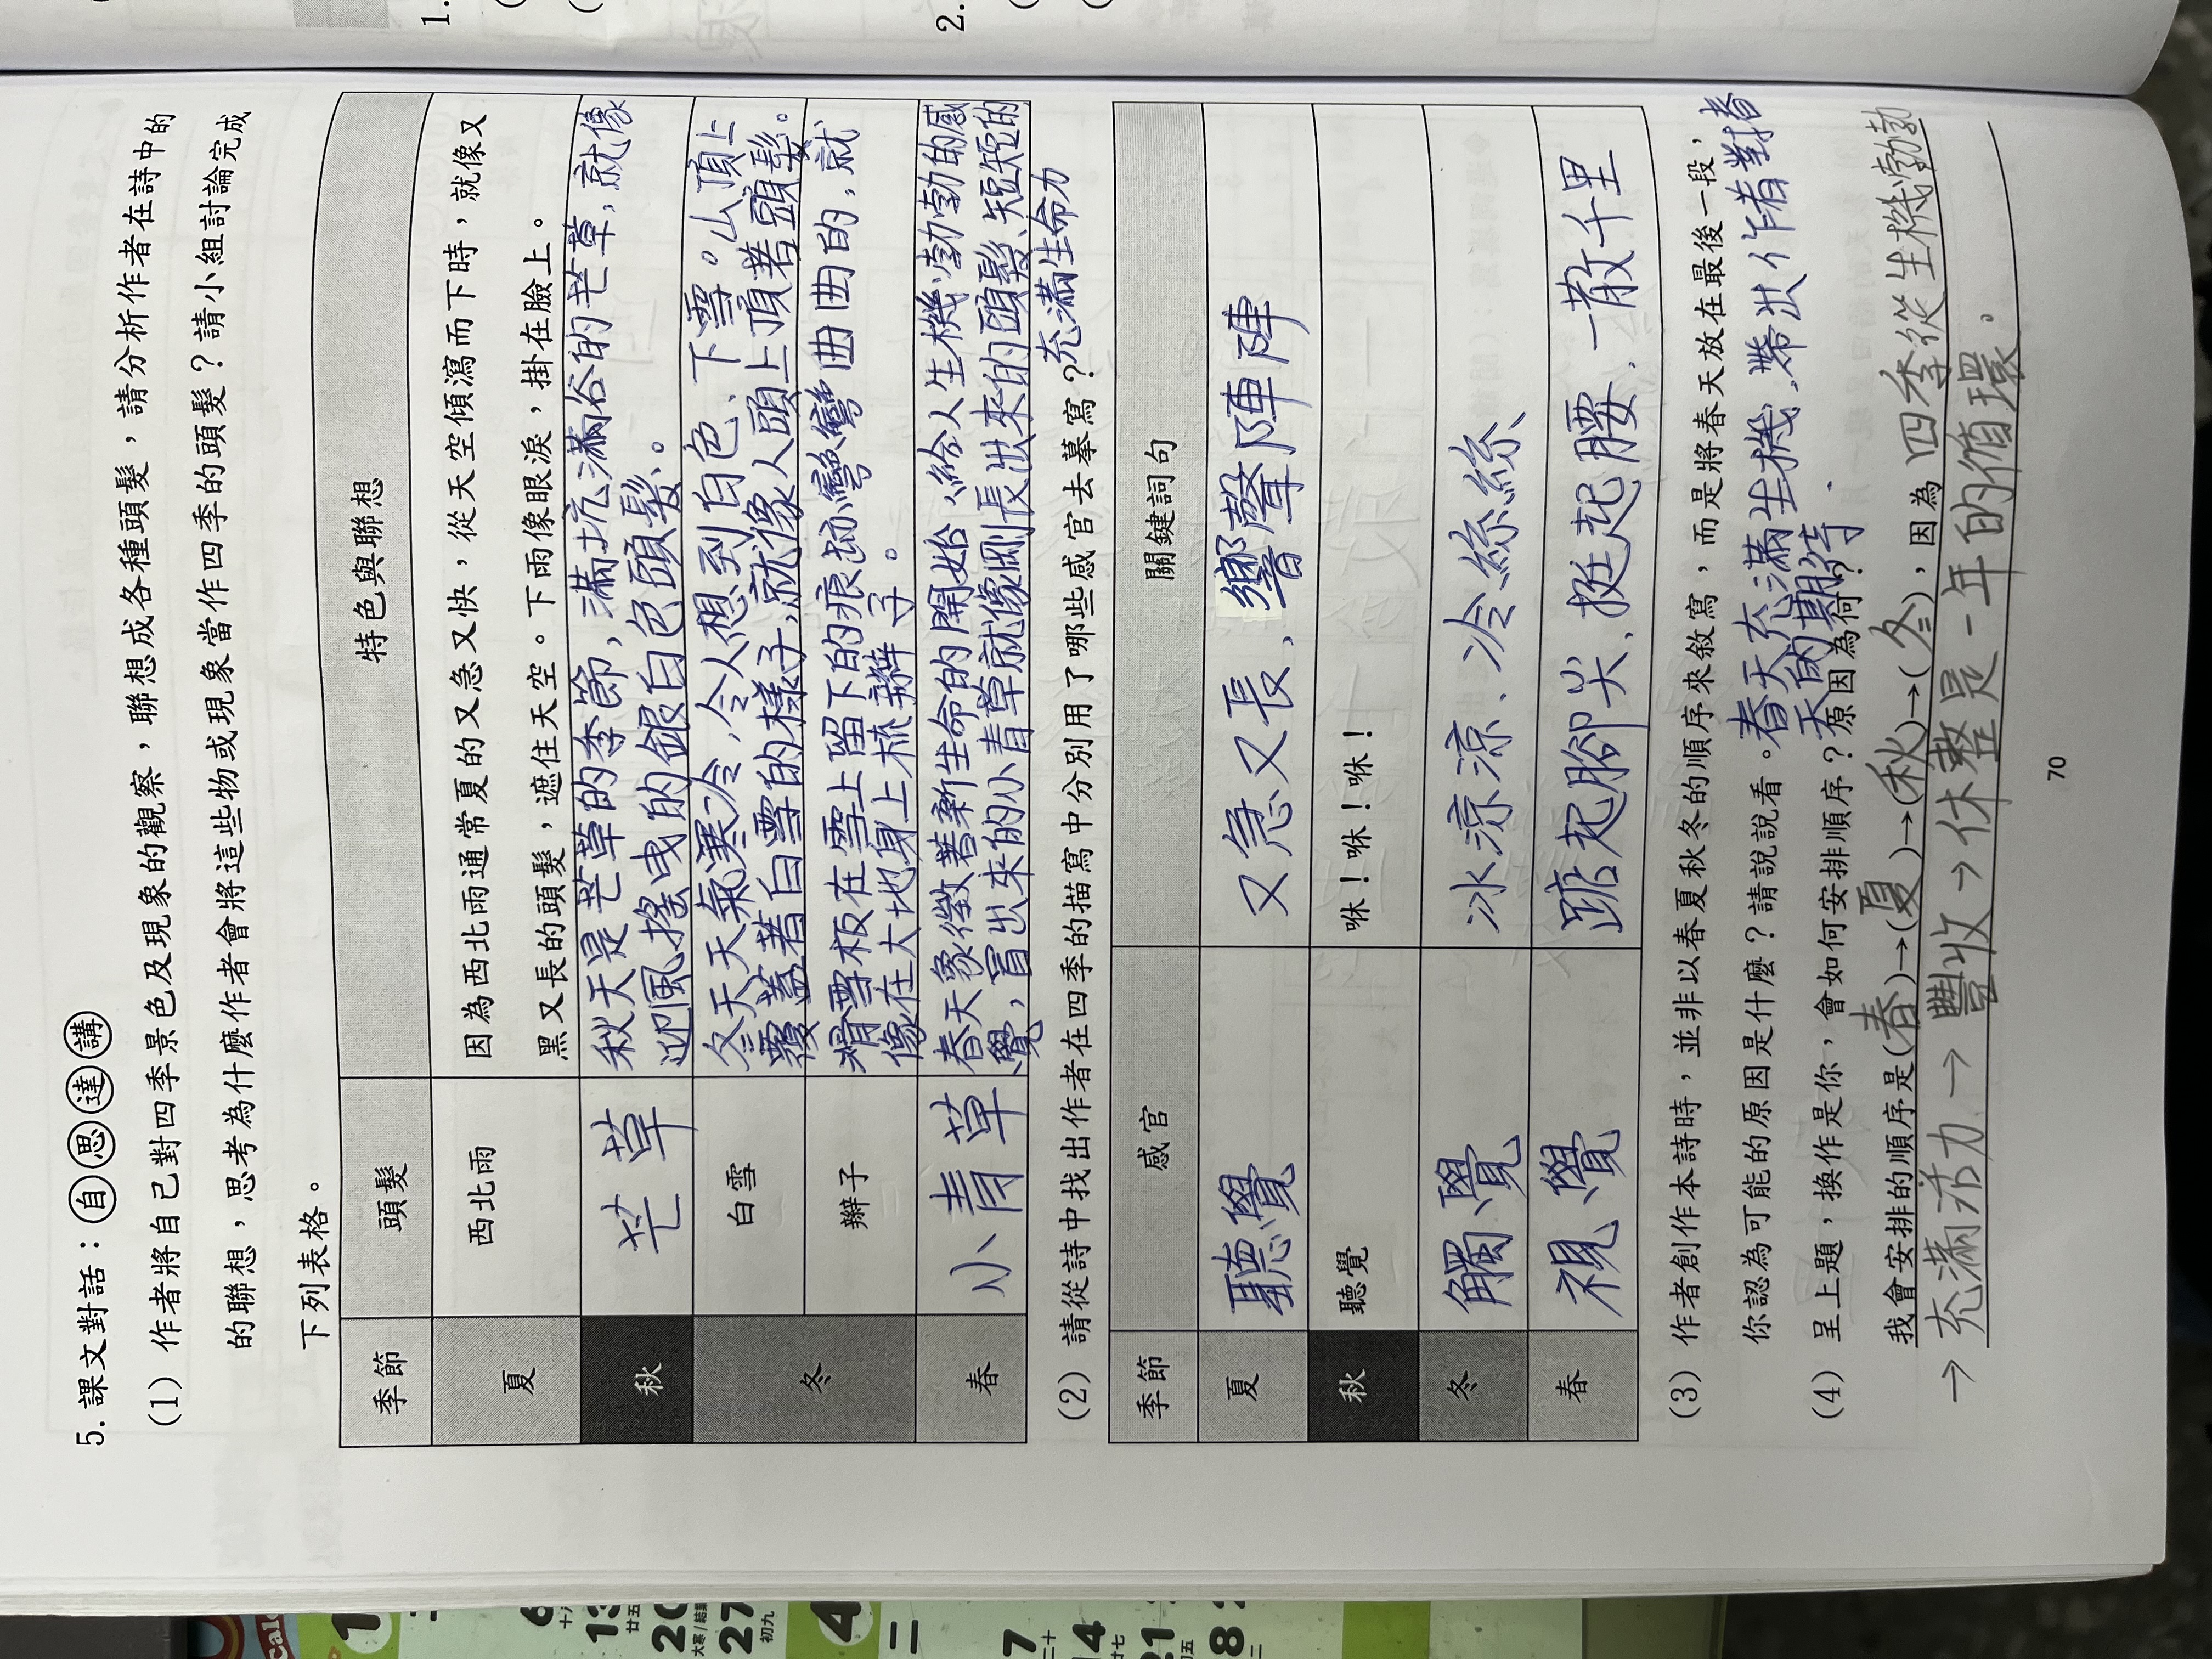 1.
2.
5. 課文對話：自思達講
(1) 作者將自己對四季景色及現象的觀察，聯想成各種頭髮，請分析作者在詩中的
的聯想，思考為什麼作者會將這些物或現象當作四季的頭髮？請小組討論完成
下列表格。
季節 頭髮 特色與聯想
夏 西北雨 因為西北雨通常夏的又急又快，從天空傾瀉而下時，就像又
黑又長的頭髮，遮住天空。下雨像眼淚，掛在臉上。
秋 芒草 秋天是芒草的季節，滿坑滿谷的芒草，就像
迎風搖曳的銀白色頭髮。
冬 白雪 冬天天氣寒冷，令人想到白色、下雪。山頂上
覆蓋著白雪的樣子，就像人頭上頂著頭髮。
辮子 滑雪板在雪上留下的痕跡彎彎曲曲的，就
像在大地身上梳辮子。
春 小青草 春天象徵著新生命的開始，給人生機勃勃的感
覺，冒出來的小青草就像剛長出來的頭髮、短短的
充滿生命力
(2) 請從詩中找出作者在四季的描寫中分別用了哪些感官去摹寫？
季節 感官 關鍵詞句
夏 聽覺 又急又長、響聲陣陣
秋 聽覺 咻！咻！咻！
冬 觸覺 冰涼涼、冷絲絲、
春 視覺 踮起腳尖、挺起腰、一散千里
(3) 作者創作本詩時，並非以春夏秋冬的順序來敘寫，而是將春天放在最後一段，
你認為可能的原因是什麼？請說說看。春天充滿生機、帶出作者對春
天的期待、
(4) 呈上題，換作是你，會如何安排順序？原因為何？
我會安排的順序是(春)→(夏)→(秋)→(冬)，因為四季從生機勃勃
→充滿活力→豐收→休整是一年的循環。
70
1
6
十八
13
廿五
20
大寒/結
27
初九
4
二
7
二十
14
廿七
21
28